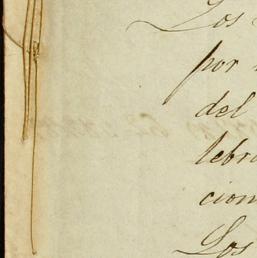 Los
por
del
lebra
cion
Los